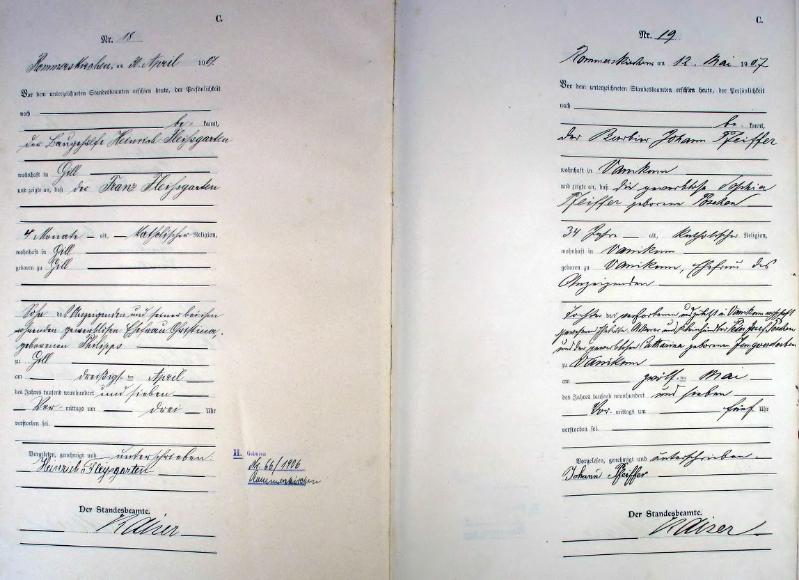 C.
Nr. 18
Rommerskirchen, am 30. April 1907.
Vor dem unterzeichneten Standesbeamten erschien heute, der Persönlichkeit
nach
be kannt,
der Heinrich Fleißgarten
wohnhaft in Gill
und zeigte an, daß der Franz Fleißgarten
4 Monate alt, katholischer Religion,
wohnhaft in Gill
geboren zu Gill
Sohn des Anzeigenden und seiner bei ihm
wohnenden Ehefrau Christina,
geborenen Philipps
zu Gill
am dreißigsten April
des Jahres tausend neunhundert und sieben
Vor mittags um drei Uhr
verstorben sei.
Vorgelesen, genehmigt und unterschrieben.
Heinrich Fleissgarten
Der Standesbeamte.
Kaiser
II. Geboren
Nr. 66/1906
Rommerskirchen
C.
Nr. 19
Rommerskirchen am 12. Mai 1907
Vor dem unterzeichneten Standesbeamten erschien heute, der Persönlichkeit
nach
be kannt,
der Barbier Johann Pfeiffer
wohnhaft in Vanikum
und zeigte an, daß die gewerblose Sophia
Pfeiffer geborene
34 Jahre alt, katholischer Religion,
wohnhaft in Vanikum
geboren zu Vanikum, Ehefrau des
Anzeigenden
Tochter des verstorbenen zuletzt in Vanikum wohnhaft
und der gewerblosen Catharina geborenen
zu Vanikum
am zwölften Mai
des Jahres tausend neunhundert und sieben
Vor mittags um fünf Uhr
verstorben sei.
Vorgelesen, genehmigt und unterschrieben.
Johann Pfeiffer
Der Standesbeamte.
Kaiser